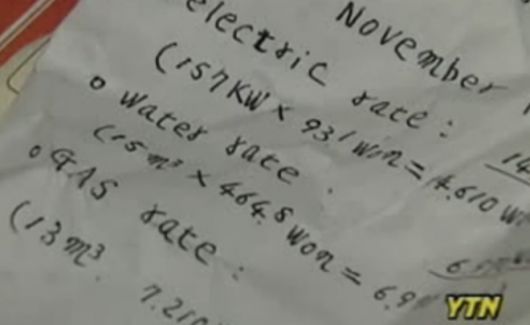 November
electric rate : 14
(157KW × 931 won = 14.610 W
o water rate .
(15 m³ × 464.8 won = 6.9
o GAS rate :
(13 m³ 7.210
YTN